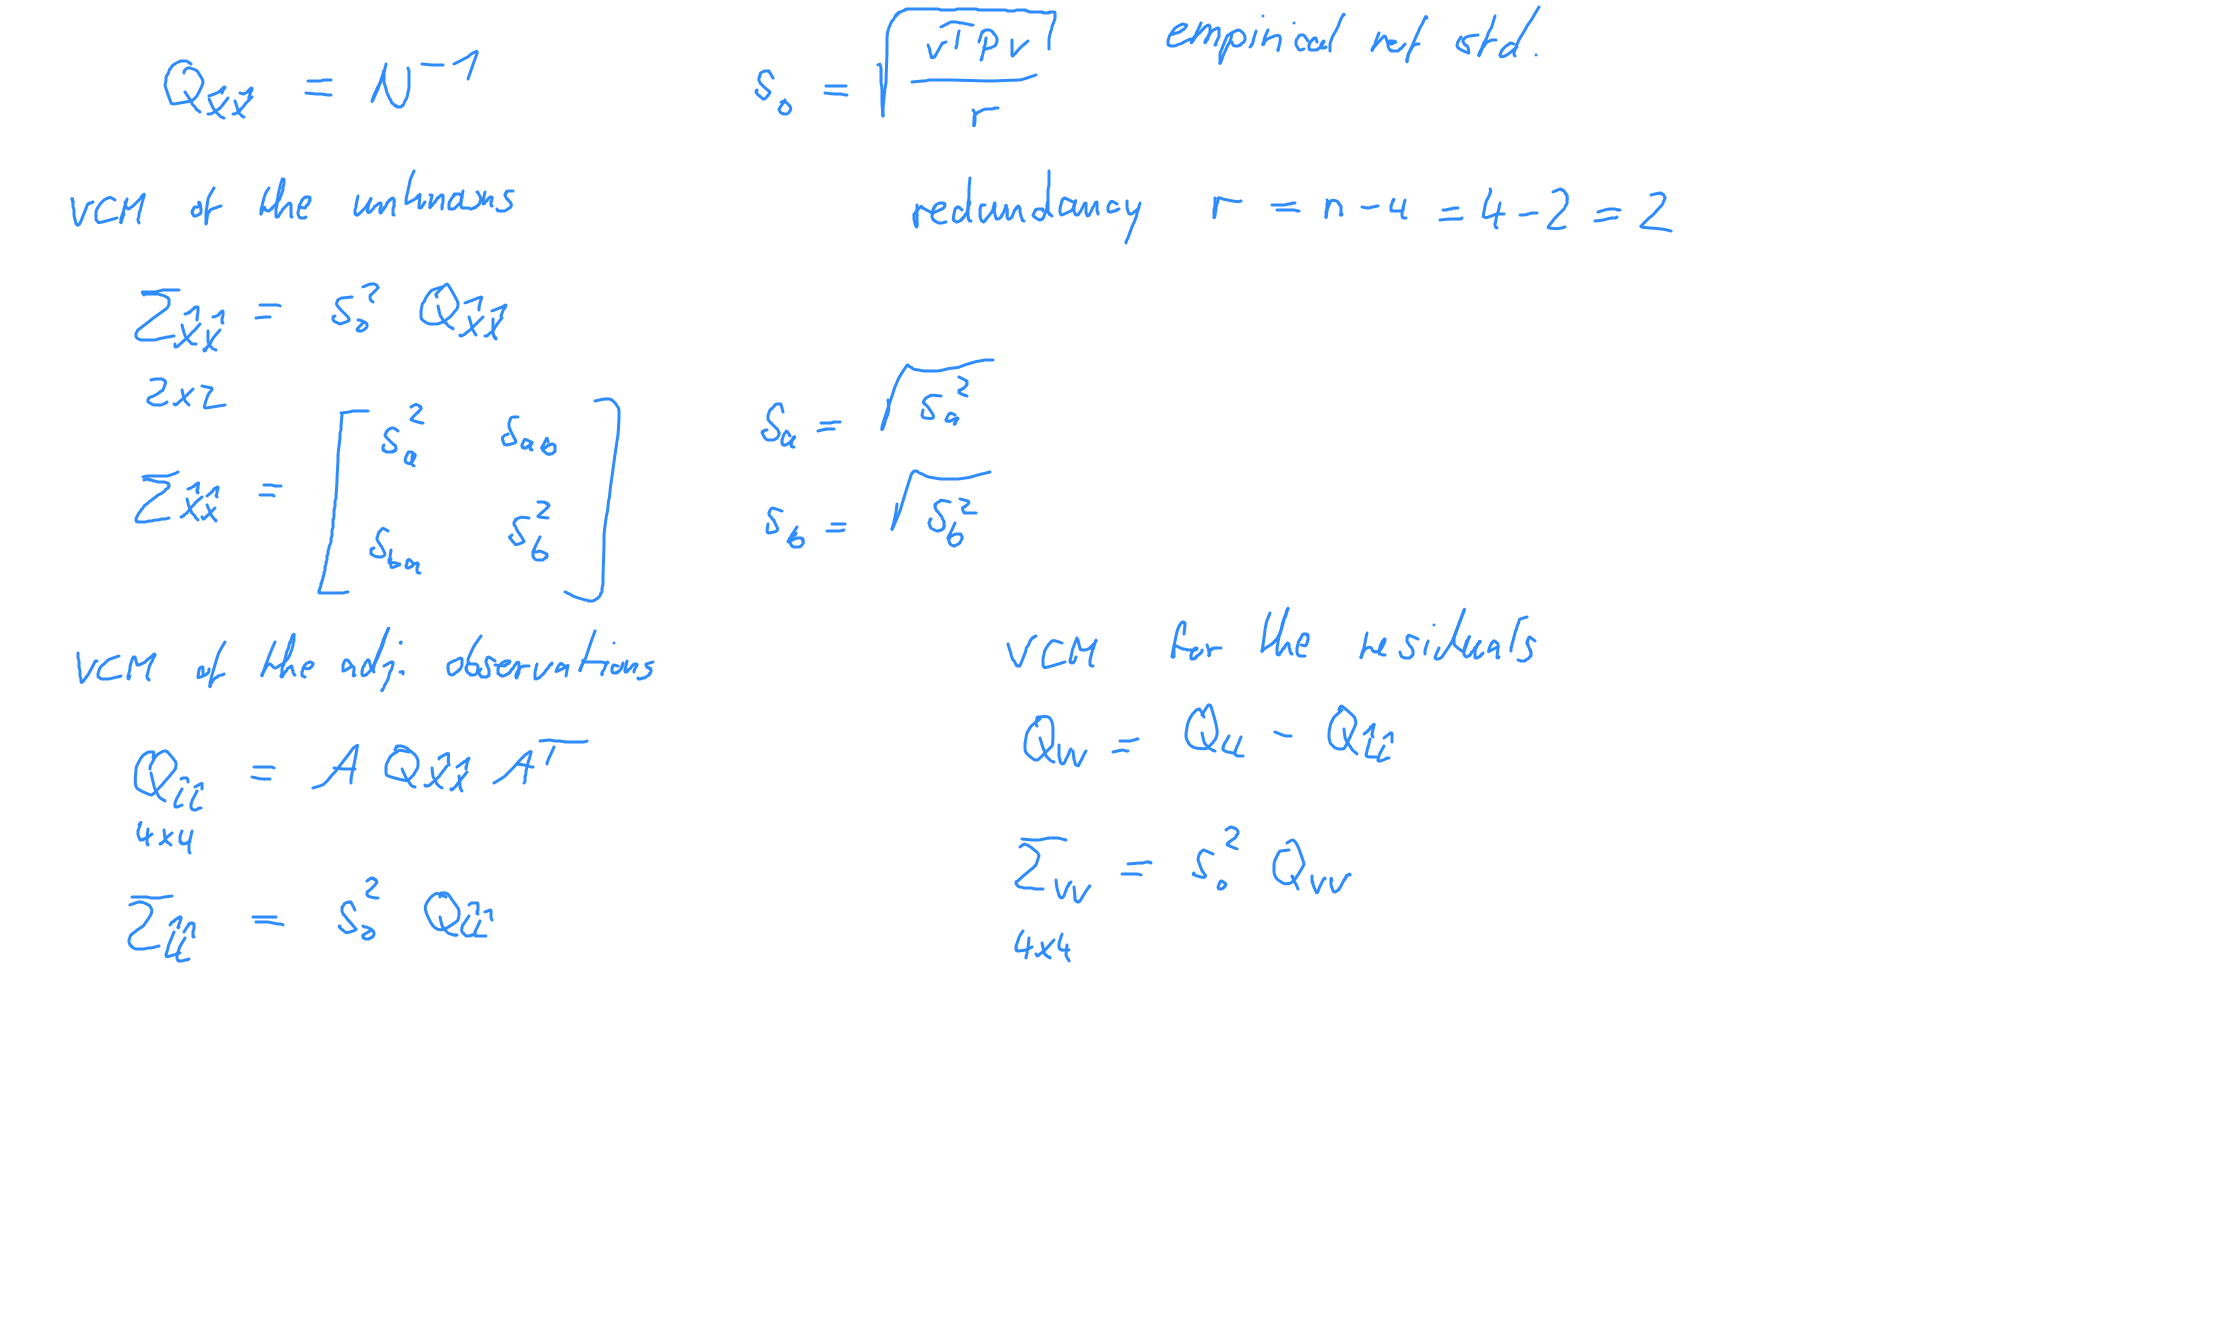 Q_x̂x̂ = N⁻¹
s₀ = √(vᵀPv / r) empirical ref std.
VCM of the unknowns
redundancy r = n - u = 4 - 2 = 2
Σ_x̂x̂ = s₀² Q_x̂x̂
2x2
Σ_x̂x̂ = [ s_a² s_ab ; s_ba s_b² ]
s_a = √(s_a²)
s_b = √(s_b²)
VCM of the adj. observations
Q_l̂l̂ = A Q_x̂x̂ Aᵀ
4x4
Σ_l̂l̂ = s₀² Q_l̂l̂
VCM for the residuals
Q_vv = Q_ll - Q_l̂l̂
Σ_vv = s₀² Q_vv
4x4